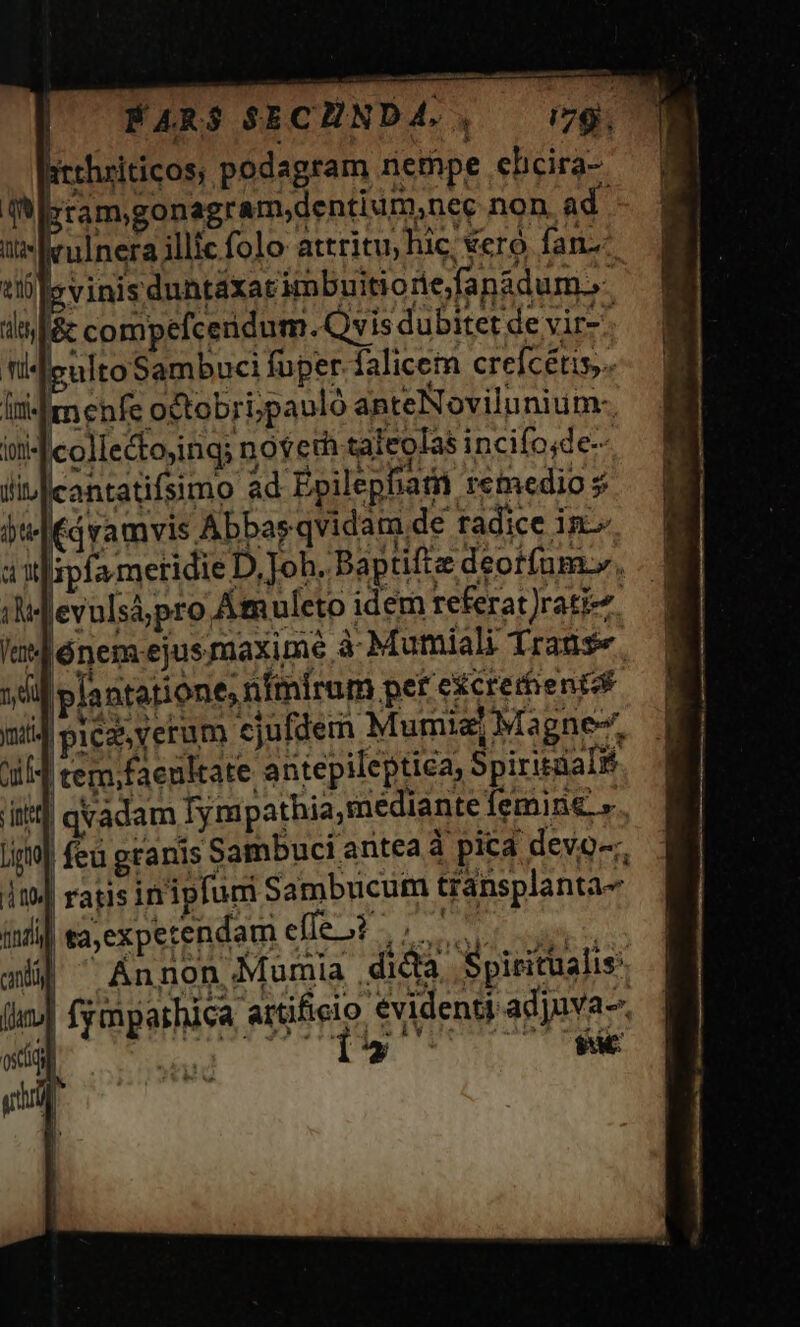 PARS SECUNDA. 179.
arthriticos, podagram nempe chcira-
gram,gonagram,dentium,nec non ad
vulnera illic ſolo attritu, hic verò ſan-
gvinis duntaxat imbuitione,ſanadum
& compeſcendum. Qvis dubitet de vir-
gulto Sambuci ſuper ſalicem creſcẽtis,
menſe octobri,paulò ante Novilunium
collecto,inq; novem taleolas inciſo,de-
cantatiſsimo ad Epilepſiam remedio
(qvamvis Abbas qvidam de radice in
ipſa meridie D. Joh. Baptiſtæ deorſum
evulsâ,pro Amuleto idem referat)rati-
onem ejus maximè à Mumiali Trans-
plantatione, nimirum per excrementa
picæ,verum ejuſdem Mumiæ, Magne-
tem,facultate antepileptica, Spirituali
qvadam ſympathia,mediante ſemine
ſeu granis Sambuci antea à pica devo-
ratis in ipſum Sambucum transplanta-
ta,expetendam eſſe?
Annon Mumia dicta Spiritualis
ſympathica artificio evidenti adjuva-
I 2